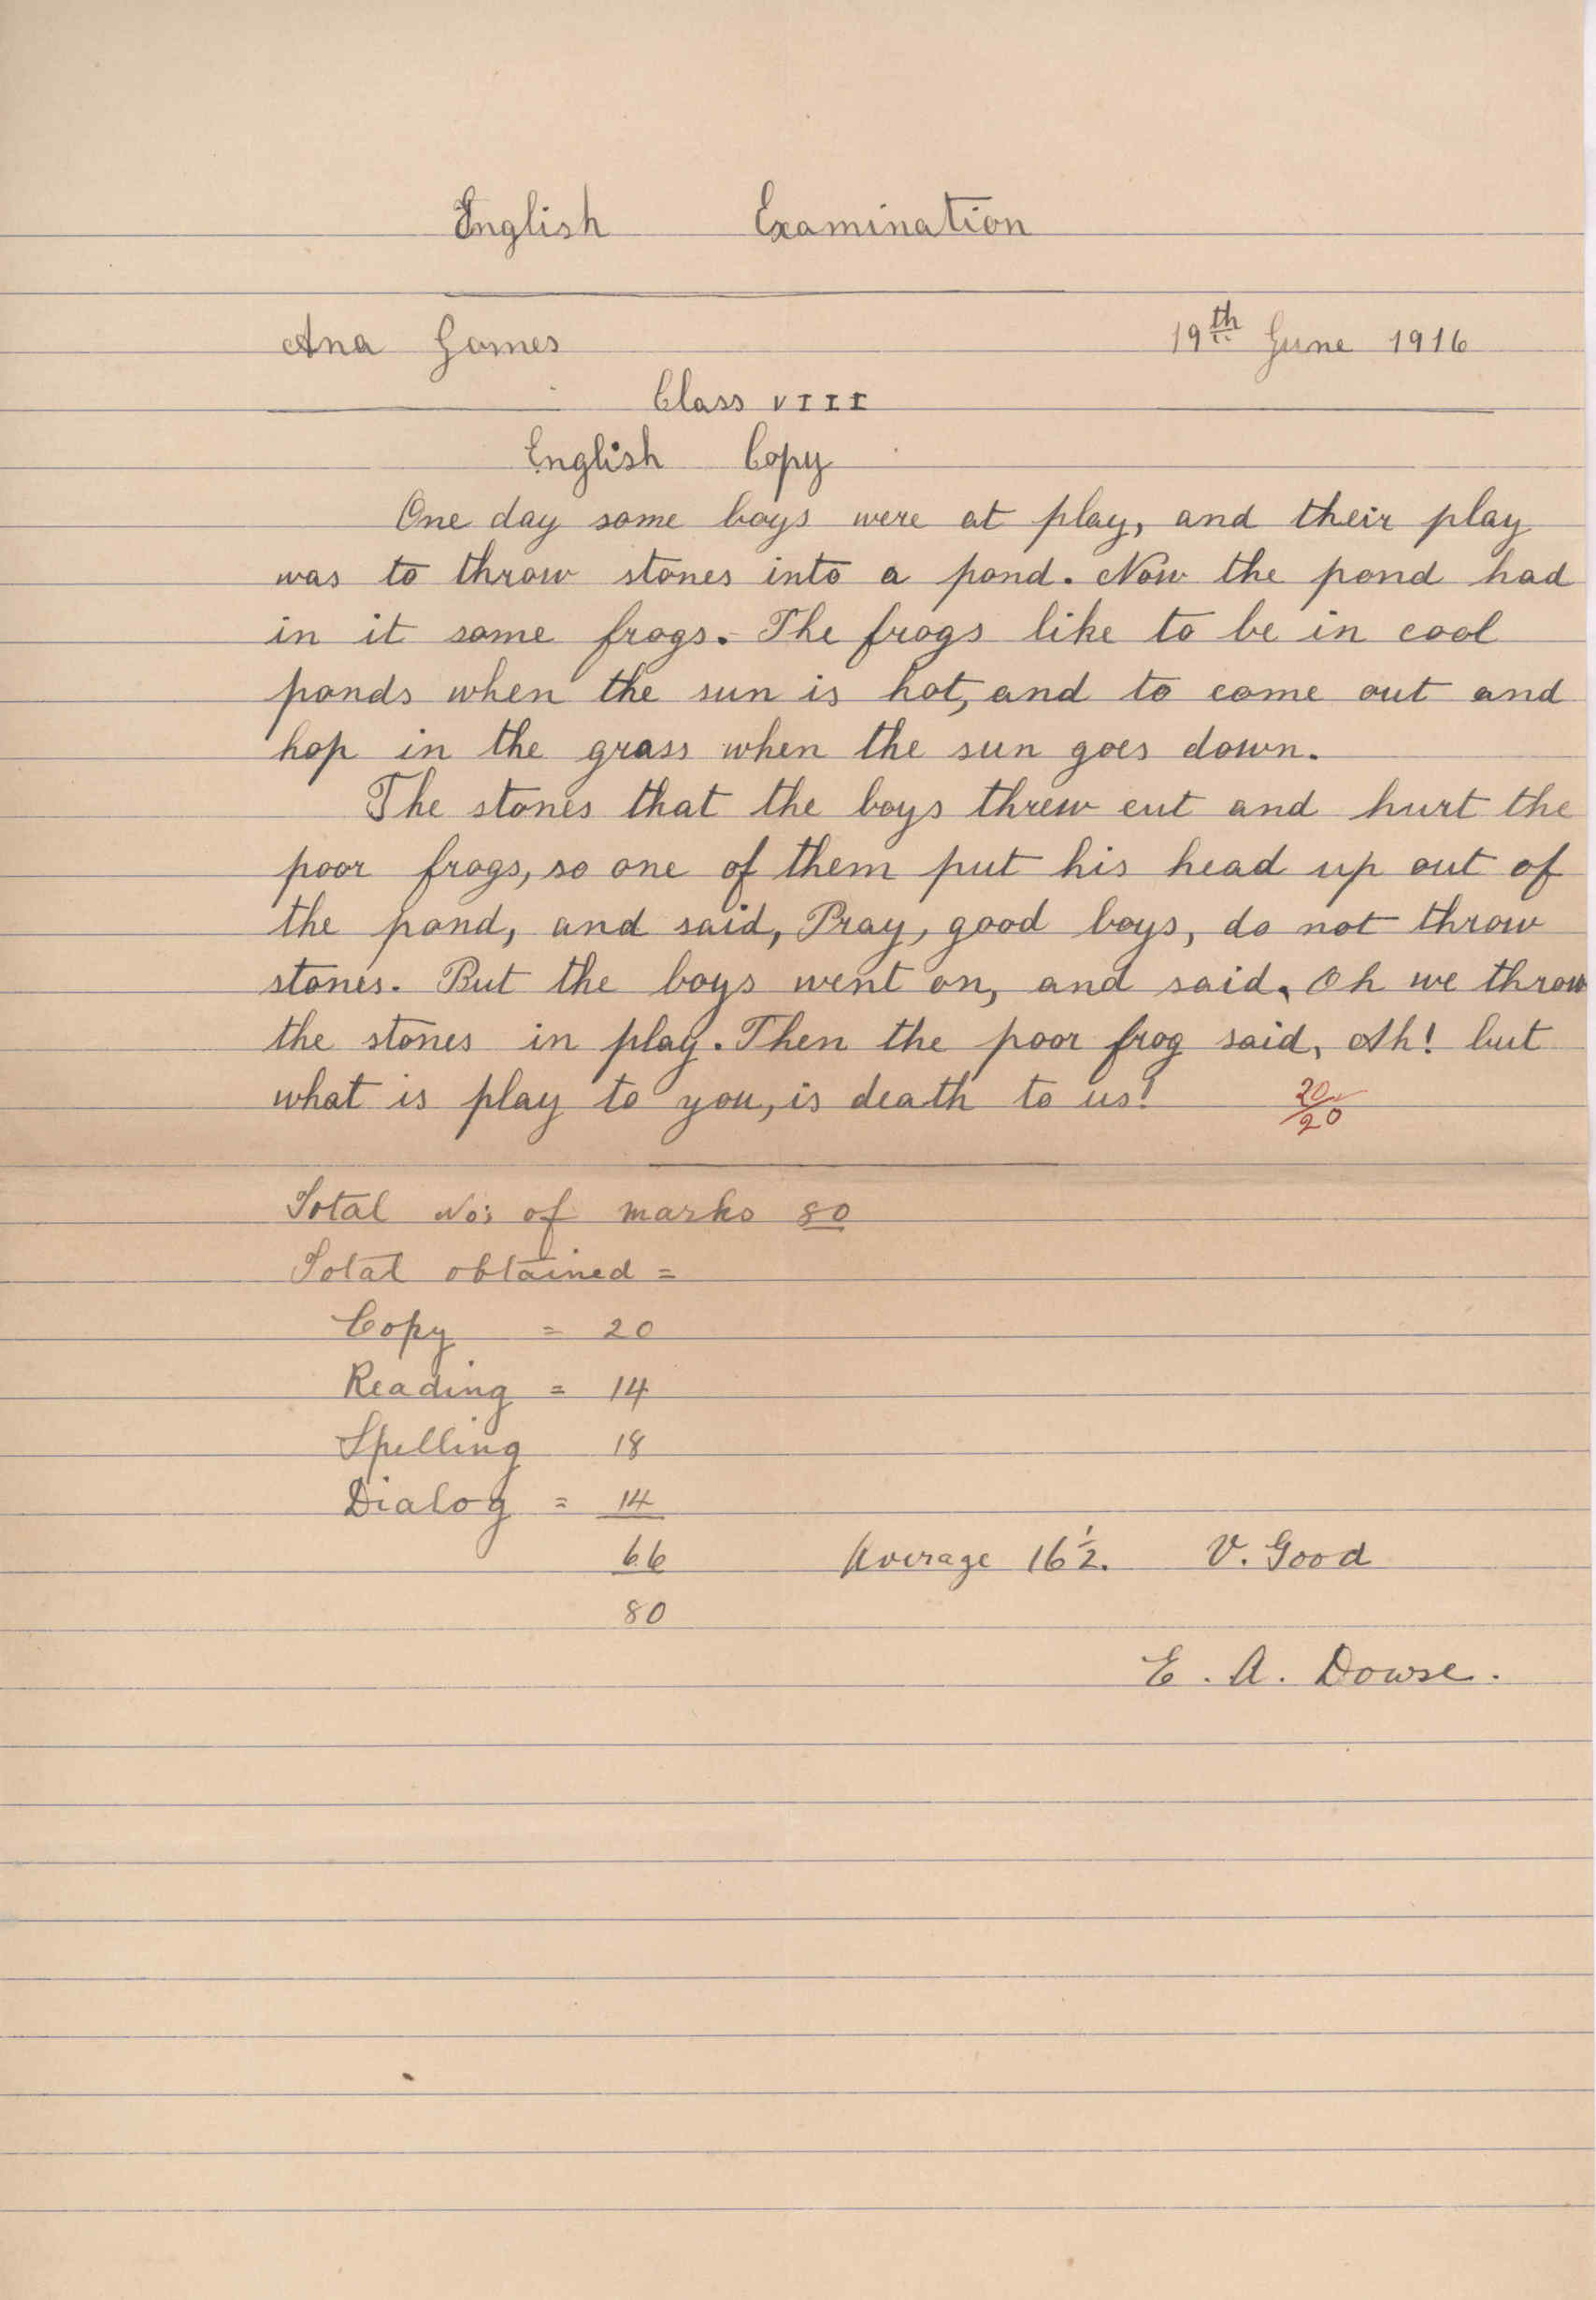 English Examination
Ana Gomes 19th June 1916
Class VIII
English Copy
One day some boys were at play, and their play
was to throw stones into a pond. Now the pond had
in it some frogs. The frogs like to be in cool
ponds when the sun is hot, and to come out and
hop in the grass when the sun goes down.
The stones that the boys threw cut and hurt the
poor frogs, so one of them put his head up out of
the pond, and said, Pray, good boys, do not throw
stones. But the boys went on, and said, Oh we throw
the stones in play. Then the poor frog said, Ah! but
what is play to you, is death to us! 20/20
Total No: of marks 80
Total obtained =
Copy = 20
Reading = 14
Spelling 18
Dialog = 14
66 Average 16 1/2. V. Good
80
E. A. Dowse.